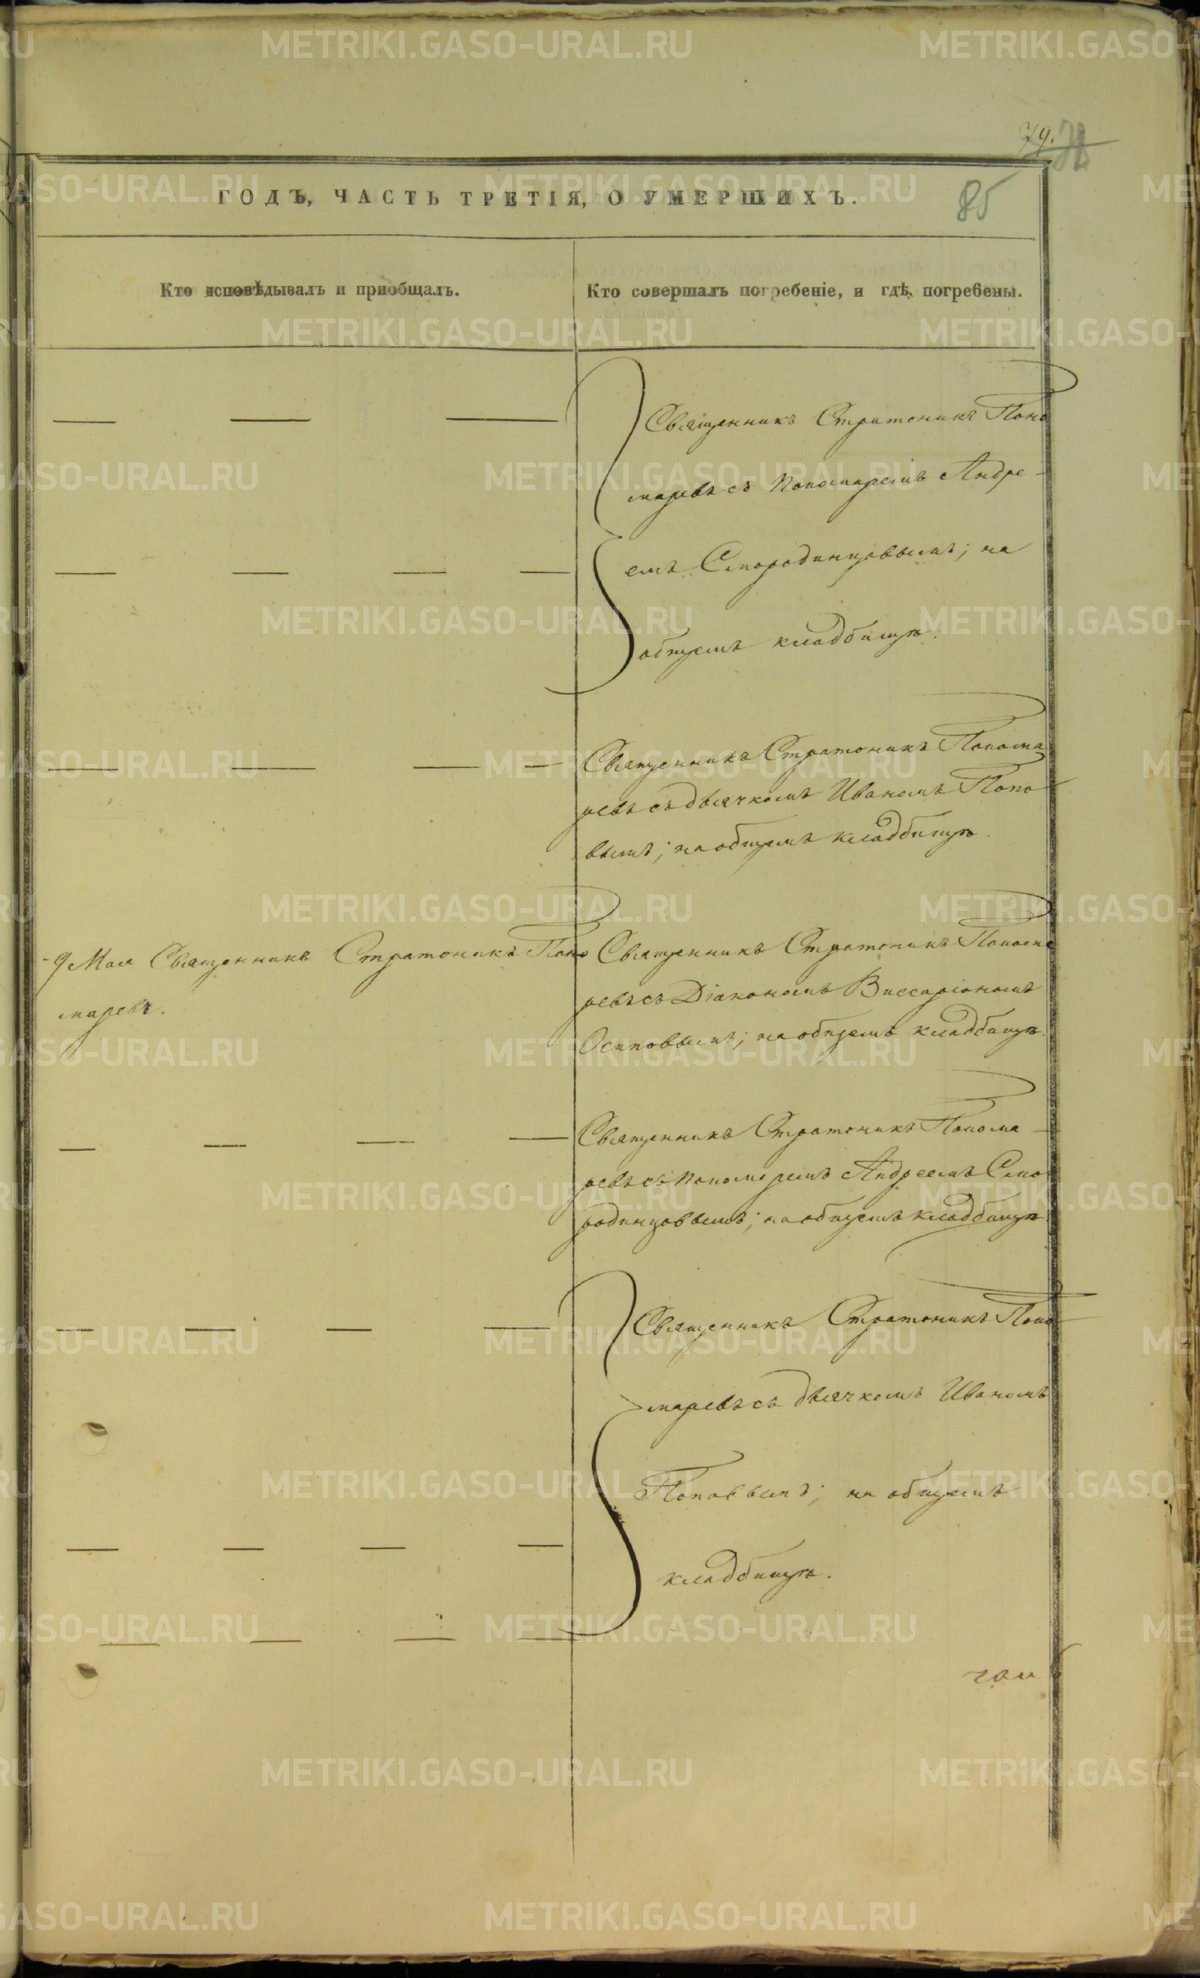 79.
85
ГОДЪ, ЧАСТЬ ТРЕТІЯ, О УМЕРШИХЪ.
Кто исповѣдывалъ и пріобщалъ.
Кто совершалъ погребеніе, и гдѣ погребены.
Священникъ Стратоникъ Поно
маревъ съ пономаремъ Андре-
емъ Смородинцовымъ; на
общемъ кладбищѣ.
Священникъ Стратоникъ Понома
ревъ съ дьячкомъ Иваномъ Попо
вымъ; на общемъ кладбищѣ.
9 Мая Священникъ Стратоникъ Поно
маревъ.
Священникъ Стратоникъ Понома
ревъ съ Діакономъ Виссаріономъ
Осиповымъ; на общемъ кладбищѣ.
Священникъ Стратоникъ Понома
ревъ съ пономаремъ Андреемъ Смо
родинцовымъ; на общемъ кладбищѣ
Священникъ Стратоникъ Поно
маревъ съ дьячкомъ Иваномъ
Поповымъ; на общемъ
кладбищѣ.
METRIKI.GASO-URAL.RU